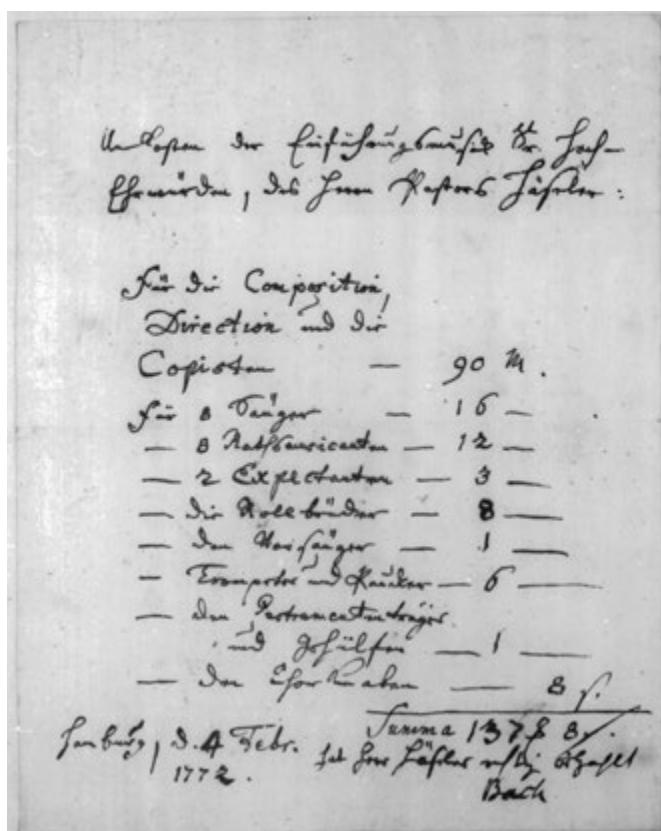 Unkosten der Einführungsmusik Sr. Hoch-
Ehrwürden, des Herrn Pastors Häseler:
Für die Composition,
Direction und die
Copisten — 90 M.
für 8 Sänger — 16 —
— 8 Rathsmusicanten — 12 —
— 2 Expectanten — 3 —
— die Rollbrüder — 8 —
— den Vorsänger — 1 —
— Trompeter und Paucker — 6 —
— den Instrumententräger
und Gehülfen — 1 —
— den Chorknaben — 8 ß.
Summa 137 8 ß.
Hamburg, d. 4 Febr. hat Herr Häseler richtig bezahlt
1772. Bach